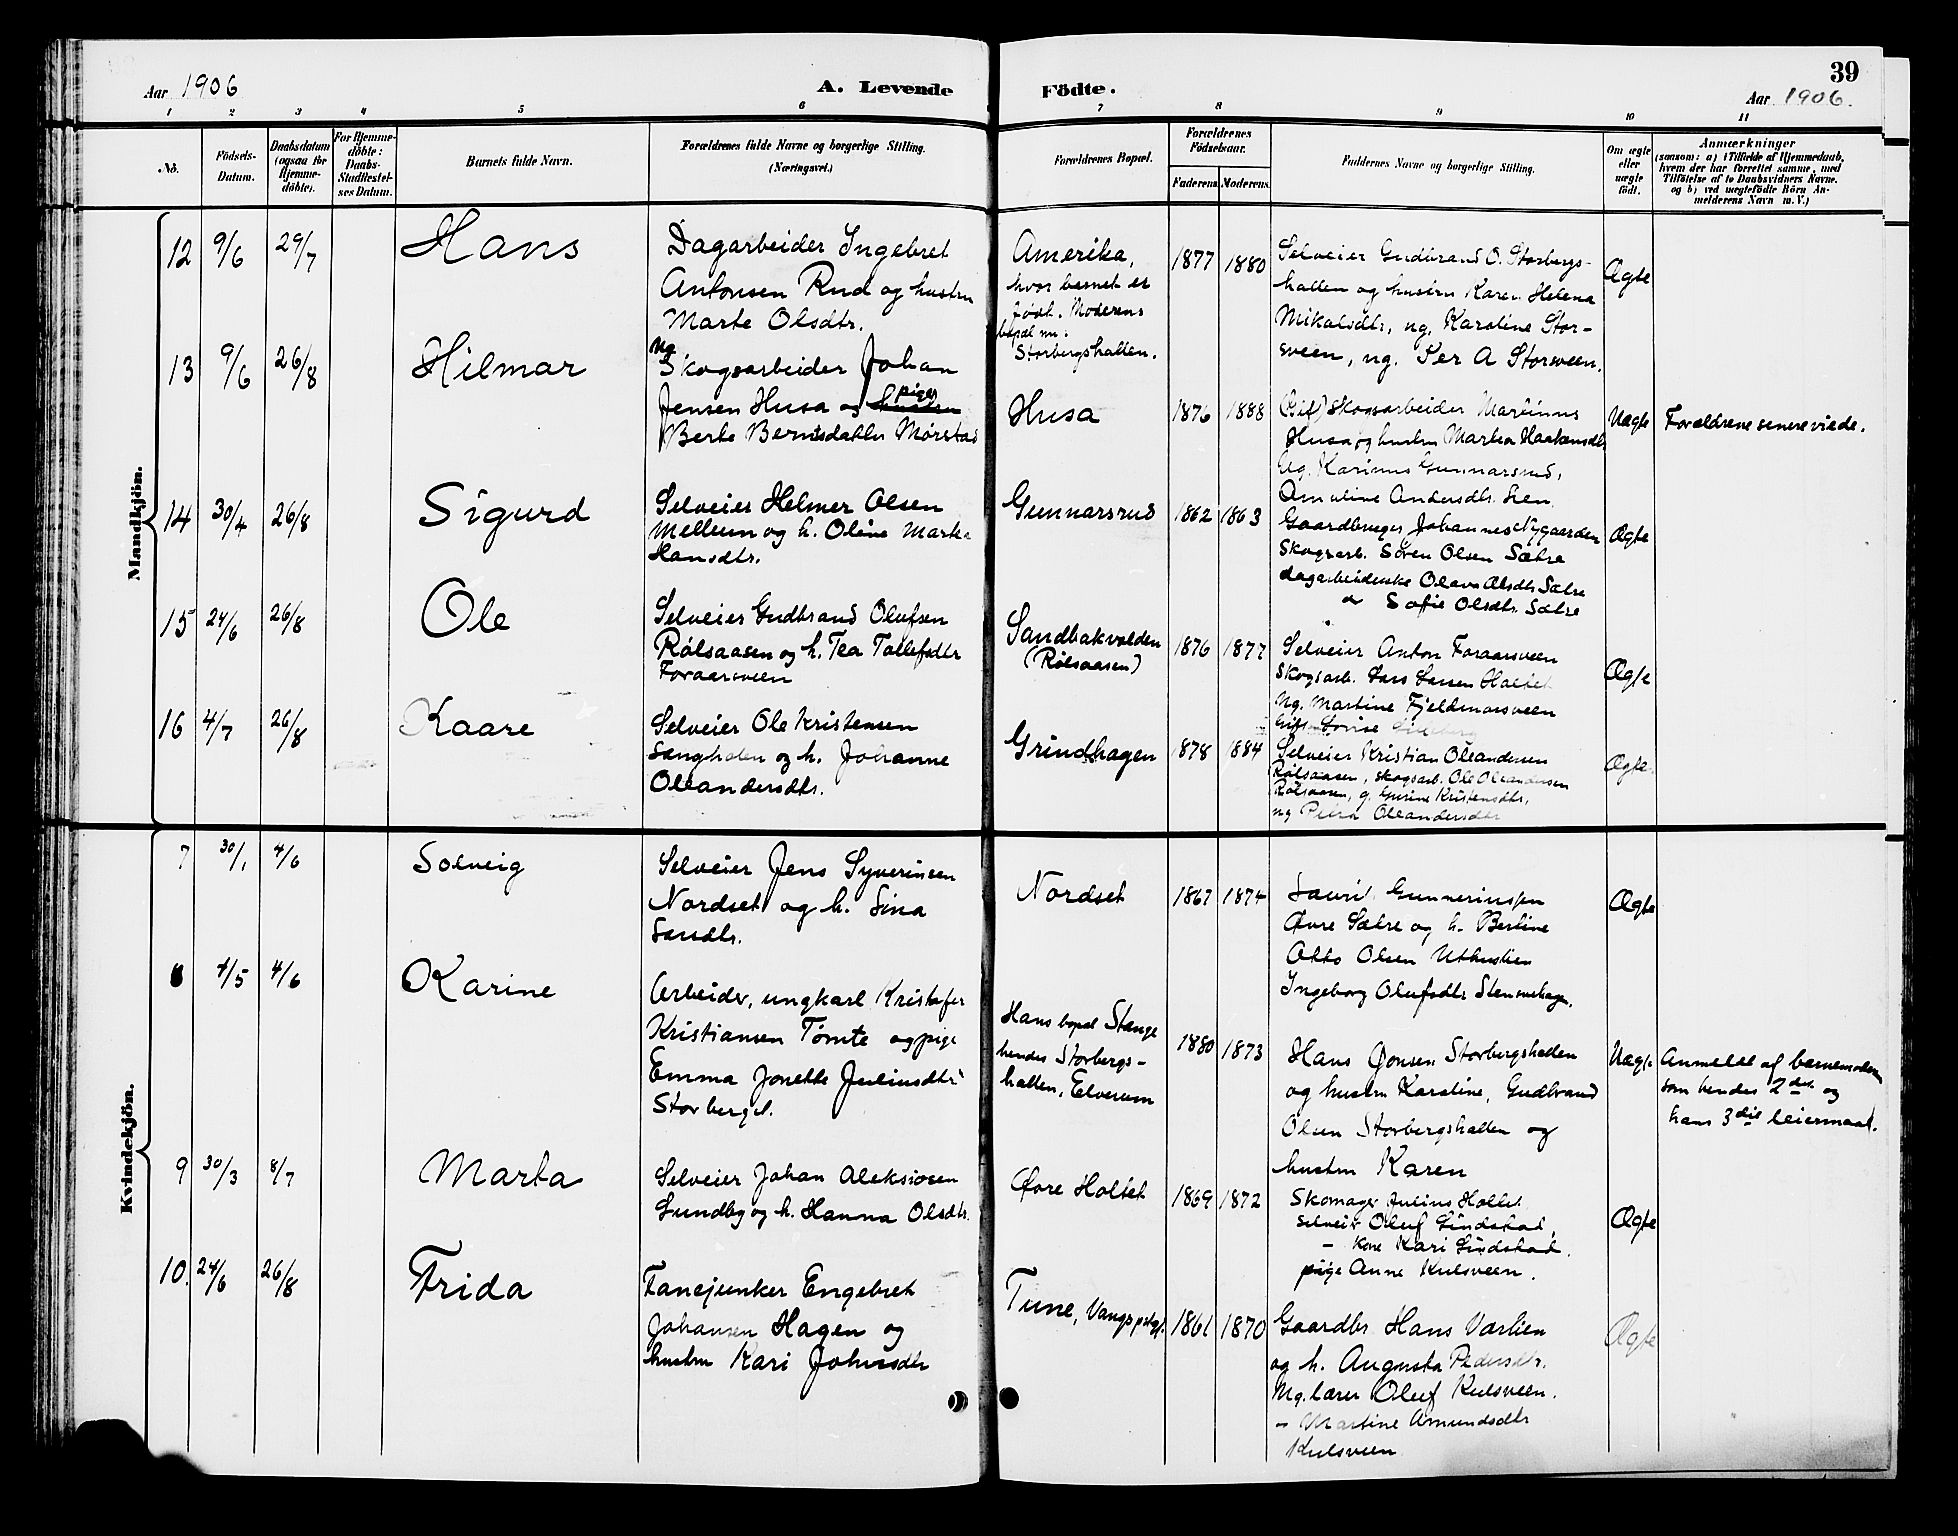 39
Aar 1906
A. Levende
Födte.
Aar 1906.
1 2 3 4 5 6 7 8 9 10 11
No.
Födsels-
Datum.
Daabsdatum
(ogsaa for
Hjemme-
döbte).
For Hjemme-
döbte:
Daabs-
Stadfæstel-
ses Datum.
Barnets fulde Navn.
Forældrenes fulde Navne og borgerlige Stilling.
(Næringsvei.)
Forældrenes Bopæl.
Forældrenes
Födselsaar.
Faderens Moderens.
Faddernes Navne og borgerlige Stilling.
Om ægte
eller
uægte
födt.
Anmærkninger
(saasom: a) i Tilfælde af Hjemmedaab,
hvem der har forrettet samme, med
Tilföielse af to Daabsvidners Navne.
og b) ved uægtefödte Börn An-
melderens Navn m. V.)
Mandkjön.
12 9/6 29/7
Hans
Dagarbeider Ingebret
Antonsen Rud og hustru
Marte Olsdtr.
Amerika,
hvor barnet er
født. Moderens
bopæl nu:
Storbergshatten.
1877 1880
Selveier Gudbrand O. Storbergs-
hatten og hustru Karen Helena
Mikalsdtr, ug. Karoline Stor-
sveen, ug. Per A Storsveen.
Ægte
13 9/6 26/8
Hilmar
Ug
Skogsarbeider Johan
Jensen Husa og hustru pige
Berte Berntsdatter Mørstad
Husa
1876 1888
(Gift) Skogsarbeider Martinus
Husa og hustru Martea Haakensdtr
Ug. Karinus Gunnarsrud,
Amuline Andersdtr. Lien
Uægte
Forældrene senere viede.
14 30/4 26/8
Sigurd
Selveier Helmer Olsen
Mellem og h. Oline Marte
Hansdtr.
Gunnarsrud
1862 1863
Gaardbruger Johannes Nygaarden
Skogsarb. Søren Olsen Sætre
dagarbeiderske Olava Olsdtr Sætre
Sofie Olsdtr. Sætre
Ægte
15 24/6 26/8
Ole
Selveier Gudbrand Olufsen
Rölsaasen og h. Tea Tollefsdtr
Foraarsveen
Sandbakvolden
(Rölsaasen)
1876 1877
Selveier Anton Foraarsveen
Skogsarb. Lars Larsen Holtet
Ug. Martine Fjeldmorsveen
Ægte
16 4/7 26/8
Kaare
Selveier Ole Kristensen
Langholen og h. Johanne
Oleandersdtr.
Grindhagen
1878 1884
Selveier Kristian Oleandersen
Rölsaasen, skogsarb. Ole Oleandersen
Rölsaasen, g. Gurine Kristensdtr,
ug Petra Oleandersdtr
Ægte.
Kvindekjön.
7 30/1 4/6
Solveig
Selveier Jens Syverinsen
Nordset og h. Lina
Larsdtr.
Nordset
1867 1874
Laurit. Gunnerinsen
Øvre Sætre og h. Bertine
Otto Olsen Uthuslien
Ingeborg Olufsdtr Stensnehagen.
Ægte
8 4/5 4/6
Karine
Arbeider, ungkarl Kristofer
Kristiansen Tömte og pige
Emma Jonette Juliusdtr
Storbergsh.
Hans bopæl Stange
hendes Storbergs-
hatten, Elverum
1880 1873
Hans Jonsen Storbergshatten
og hustru Karoline, Gudbrand
Olsen Storbergshatten og
hustru Karen
Uægte
Anmeldt af barnemoderen
som hendes 2det og
hans 3die leiermaal.
9 30/3 8/7
Marta
Selveier Johan Aleksiosen
Lundby og h. Hanna Olsdtr.
Øvre Holtet
1869 1872
Skomager Julius Holtet
selveier Oluf Lindstad,
- kone Kari Lindstad.
pige Anne Kulsveen.
Ægte
10. 24/6 26/8
Frida
Fanejunker Engebret
Johansen Hagen og
hustru Kari Johnsdtr
Tune, Vangs pstgj.
1861 1870
Gaardbr. Hans Vørlien
og h. Augusta Pedersdtr.
Ug. lærer Oluf Kulsveen.
- Martine Amundsdtr
Kulsveen
Ægte